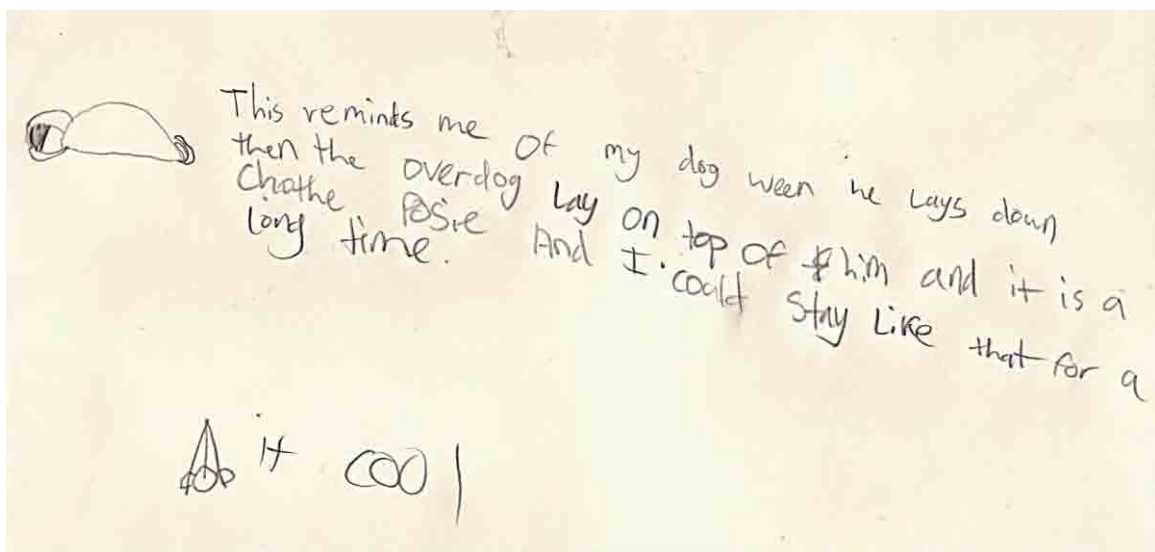 This reminds me of my dog ween he lays down
then the overdog Lay on top of him and it is a
Chathe Posie And I could Stay Like that for a
long time.
it cool